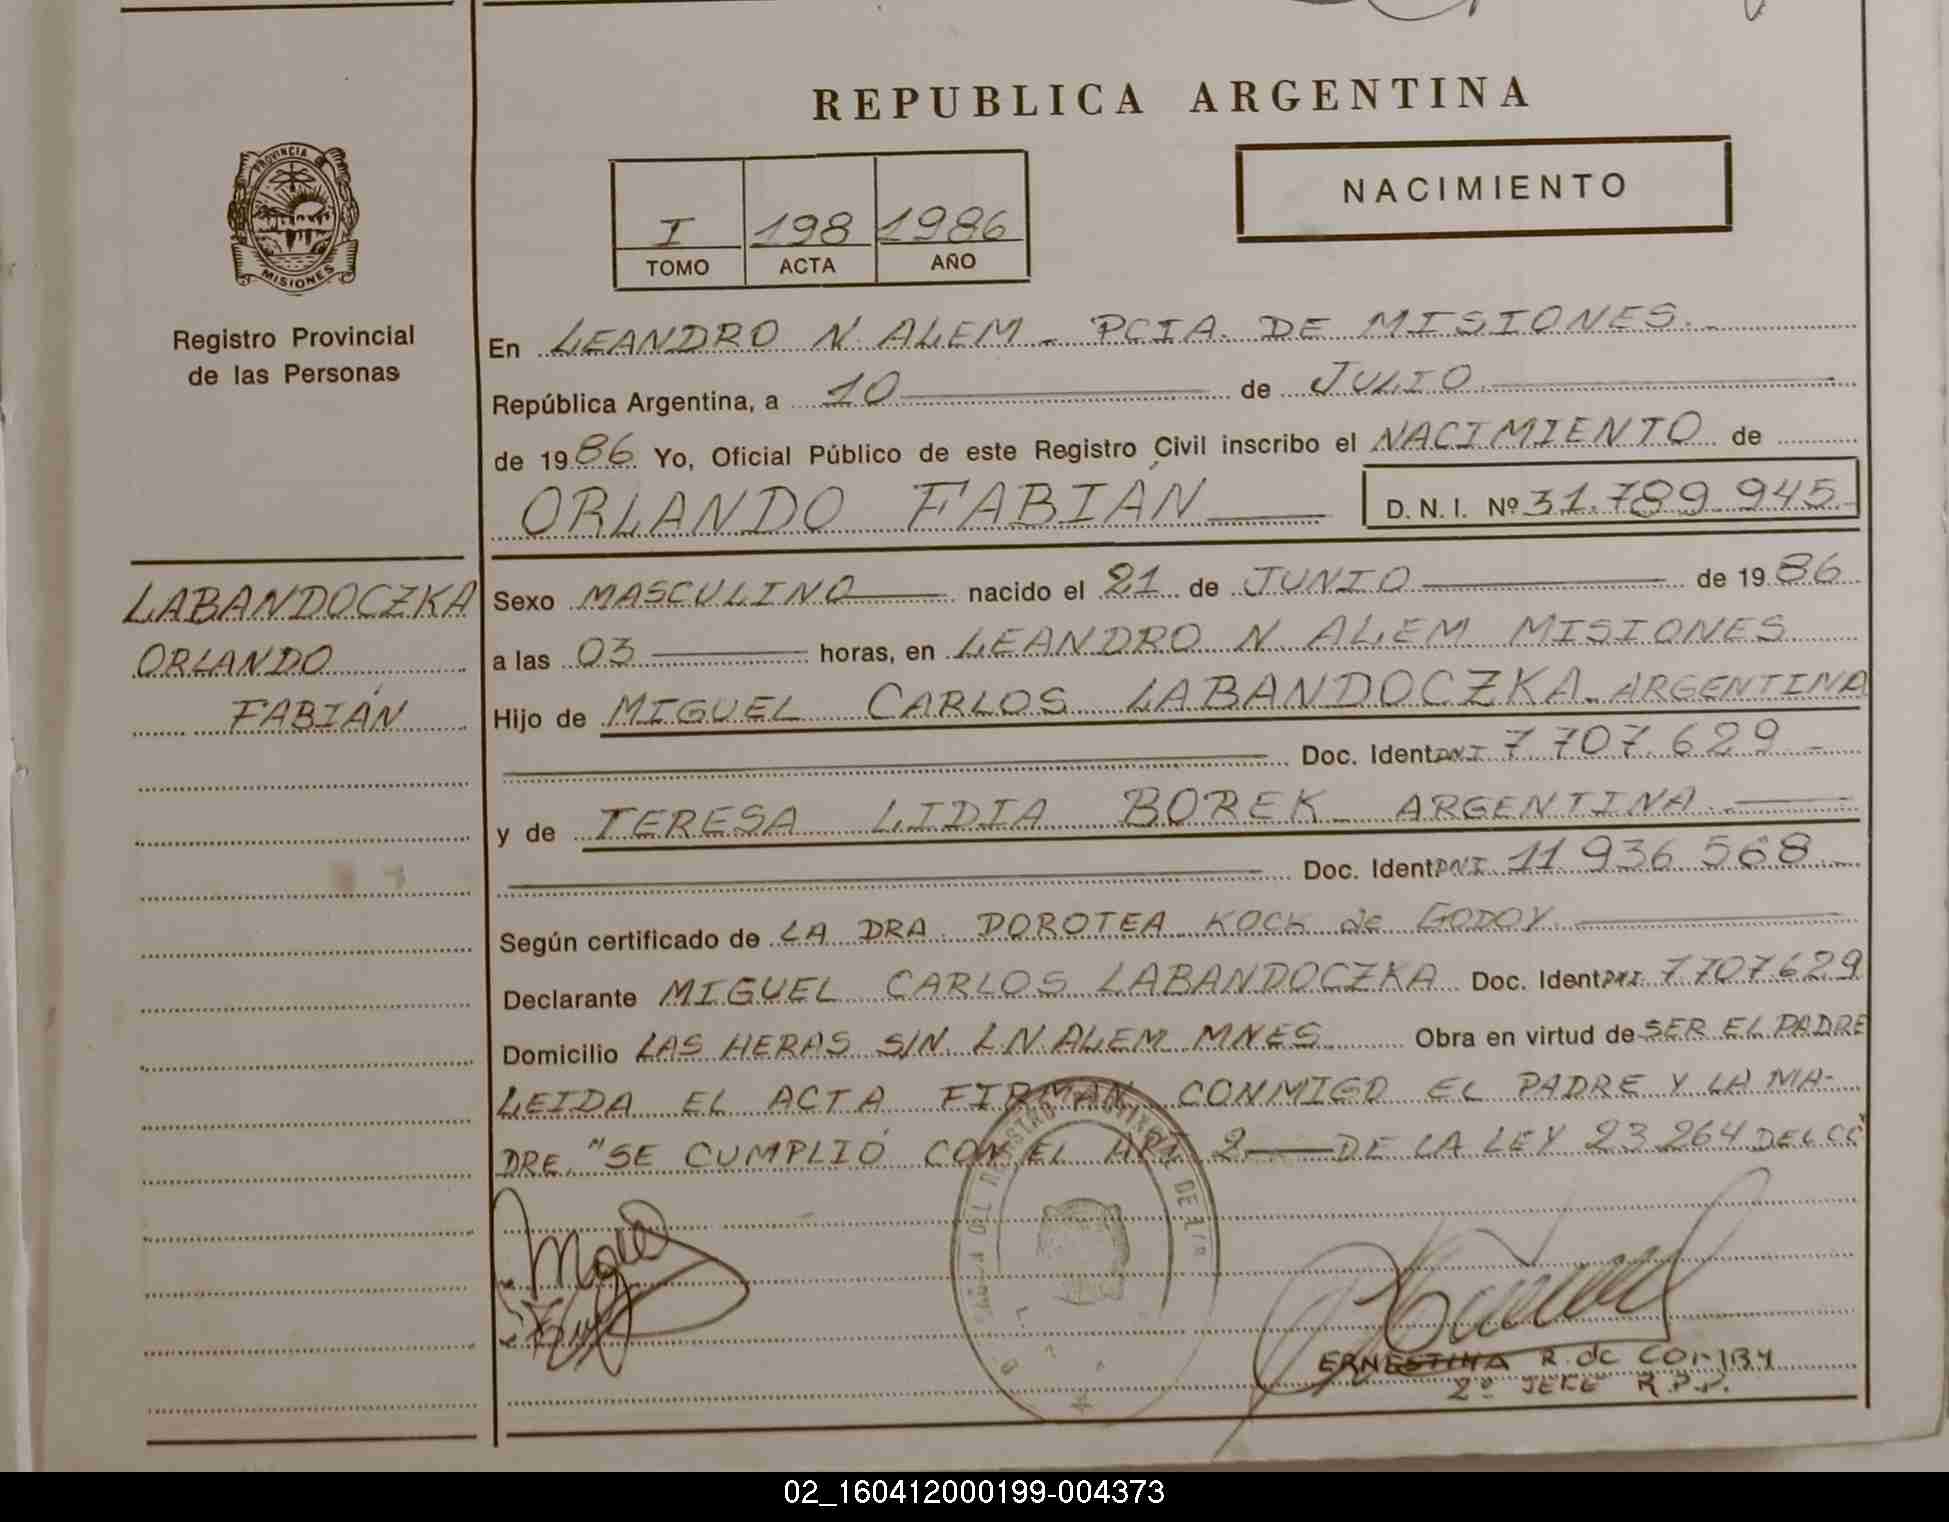 REPUBLICA ARGENTINA
NACIMIENTO
PROVINCIA
MISIONES
I 198 1986
TOMO ACTA AÑO
Registro Provincial
de las Personas
En LEANDRO N. ALEM - PCIA. DE MISIONES.-
República Argentina, a 10 de JULIO
de 1986 Yo, Oficial Público de este Registro Civil inscribo el NACIMIENTO de
ORLANDO FABIÁN
D. N. I. Nº 31.789.945.-
LABANDOCZKA
ORLANDO
FABIÁN
Sexo MASCULINO nacido el 21 de JUNIO de 1986
a las 03 horas, en LEANDRO N. ALEM MISIONES
Hijo de MIGUEL CARLOS LABANDOCZKA - ARGENTINA
Doc. Ident. DNI 7.707.629 -
y de TERESA LIDIA BOREK - ARGENTINA.
Doc. Ident. DNI 11.936.568.-
Según certificado de LA DRA. DOROTEA KOCK de GODOY.
Declarante MIGUEL CARLOS LABANDOCZKA Doc. Ident. DNI 7.707.629
Domicilio LAS HERAS S/N. L.N. ALEM MNES Obra en virtud de SER EL PADRE
LEIDA EL ACTA FIRMAN CONMIGO EL PADRE Y LA MA-
DRE. "SE CUMPLIÓ CON EL ART. 2 DE LA LEY 23.264 DEL CC"
Miguel
ERNESTINA R. de
2º JEFE R.P.P.
02_160412000199-004373